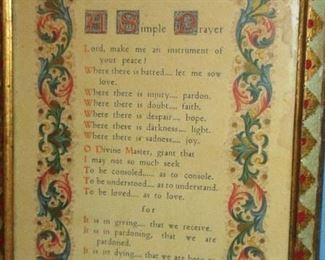 A Simple Prayer
Lord, make me an instrument of
your peace!
Where there is hatred.... let me sow
love.
Where there is injury.... pardon.
Where there is doubt.... faith,
Where there is despair.... hope.
Where there is darkness.... light.
Where there is sadness.... joy.
O Divine Master, grant that
I may not so much seek
To be consoled..... as to console.
To be understood.... as to understand.
To be loved.... as to love.
for
It is in giving.... that we receive.
It is in pardoning, that we are
pardoned.
It is in dying.... that we are